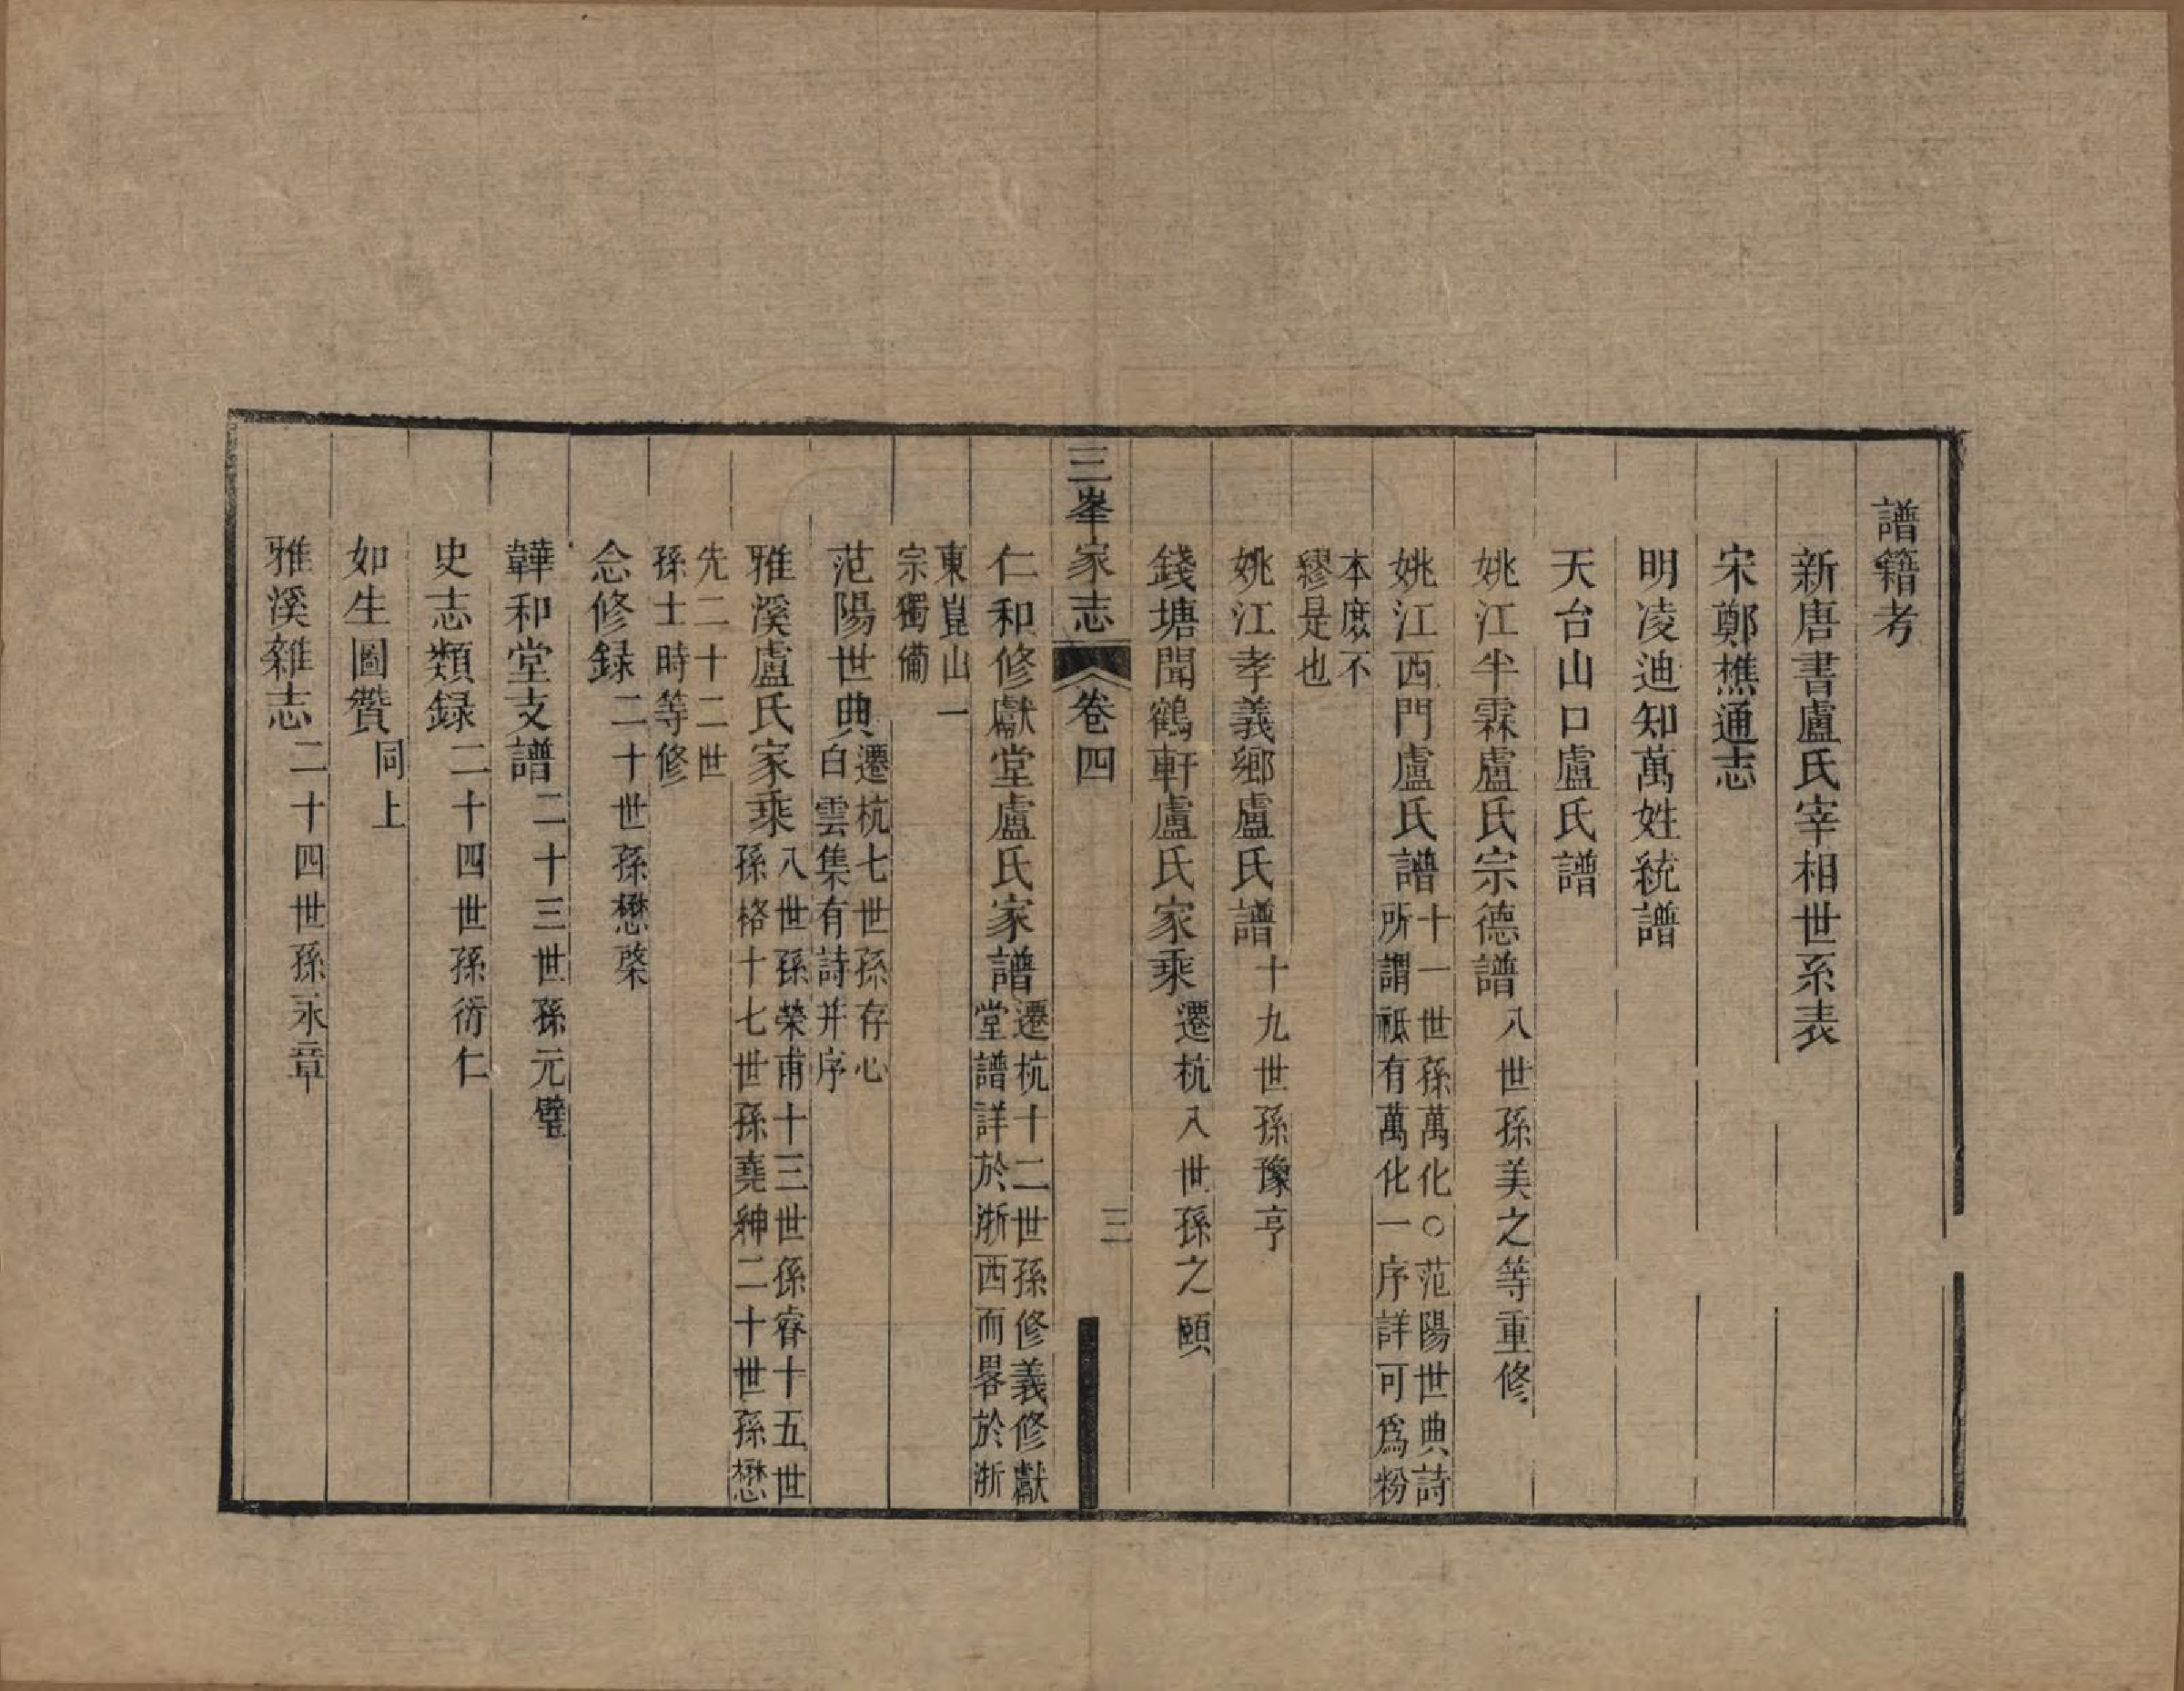 譜籍考
新唐書盧氏宰相世系表
宋鄭樵通志
明凌迪知萬姓統譜
天台山口盧氏譜
姚江半霖盧氏宗德譜八世孫美之等重修
姚江西門盧氏譜十一世孫萬化○范陽世典詩
所謂祗有萬化一序詳可爲粉
本庶不
繆是也
姚江孝義鄉盧氏譜十九世孫豫亨
錢塘聞鶴軒盧氏家乘遷杭入世孫之頤
三峯家志 卷四 三
仁和修獻堂盧氏家譜遷杭十二世孫修義修獻
堂譜詳於浙西而畧於浙
東崑山一
宗獨備
范陽世典遷杭七世孫存心
白雲集有詩并序
雅溪盧氏家乘八世孫榮甫十三世孫睿十五世
孫格十七世孫堯紳二十世孫懋
先二十二世
孫士時等修
念修録二十世孫懋棨
韡和堂支譜二十三世孫元璧
史志類録二十四世孫衍仁
如生圖贊同上
雅溪雜志二十四世孫永章